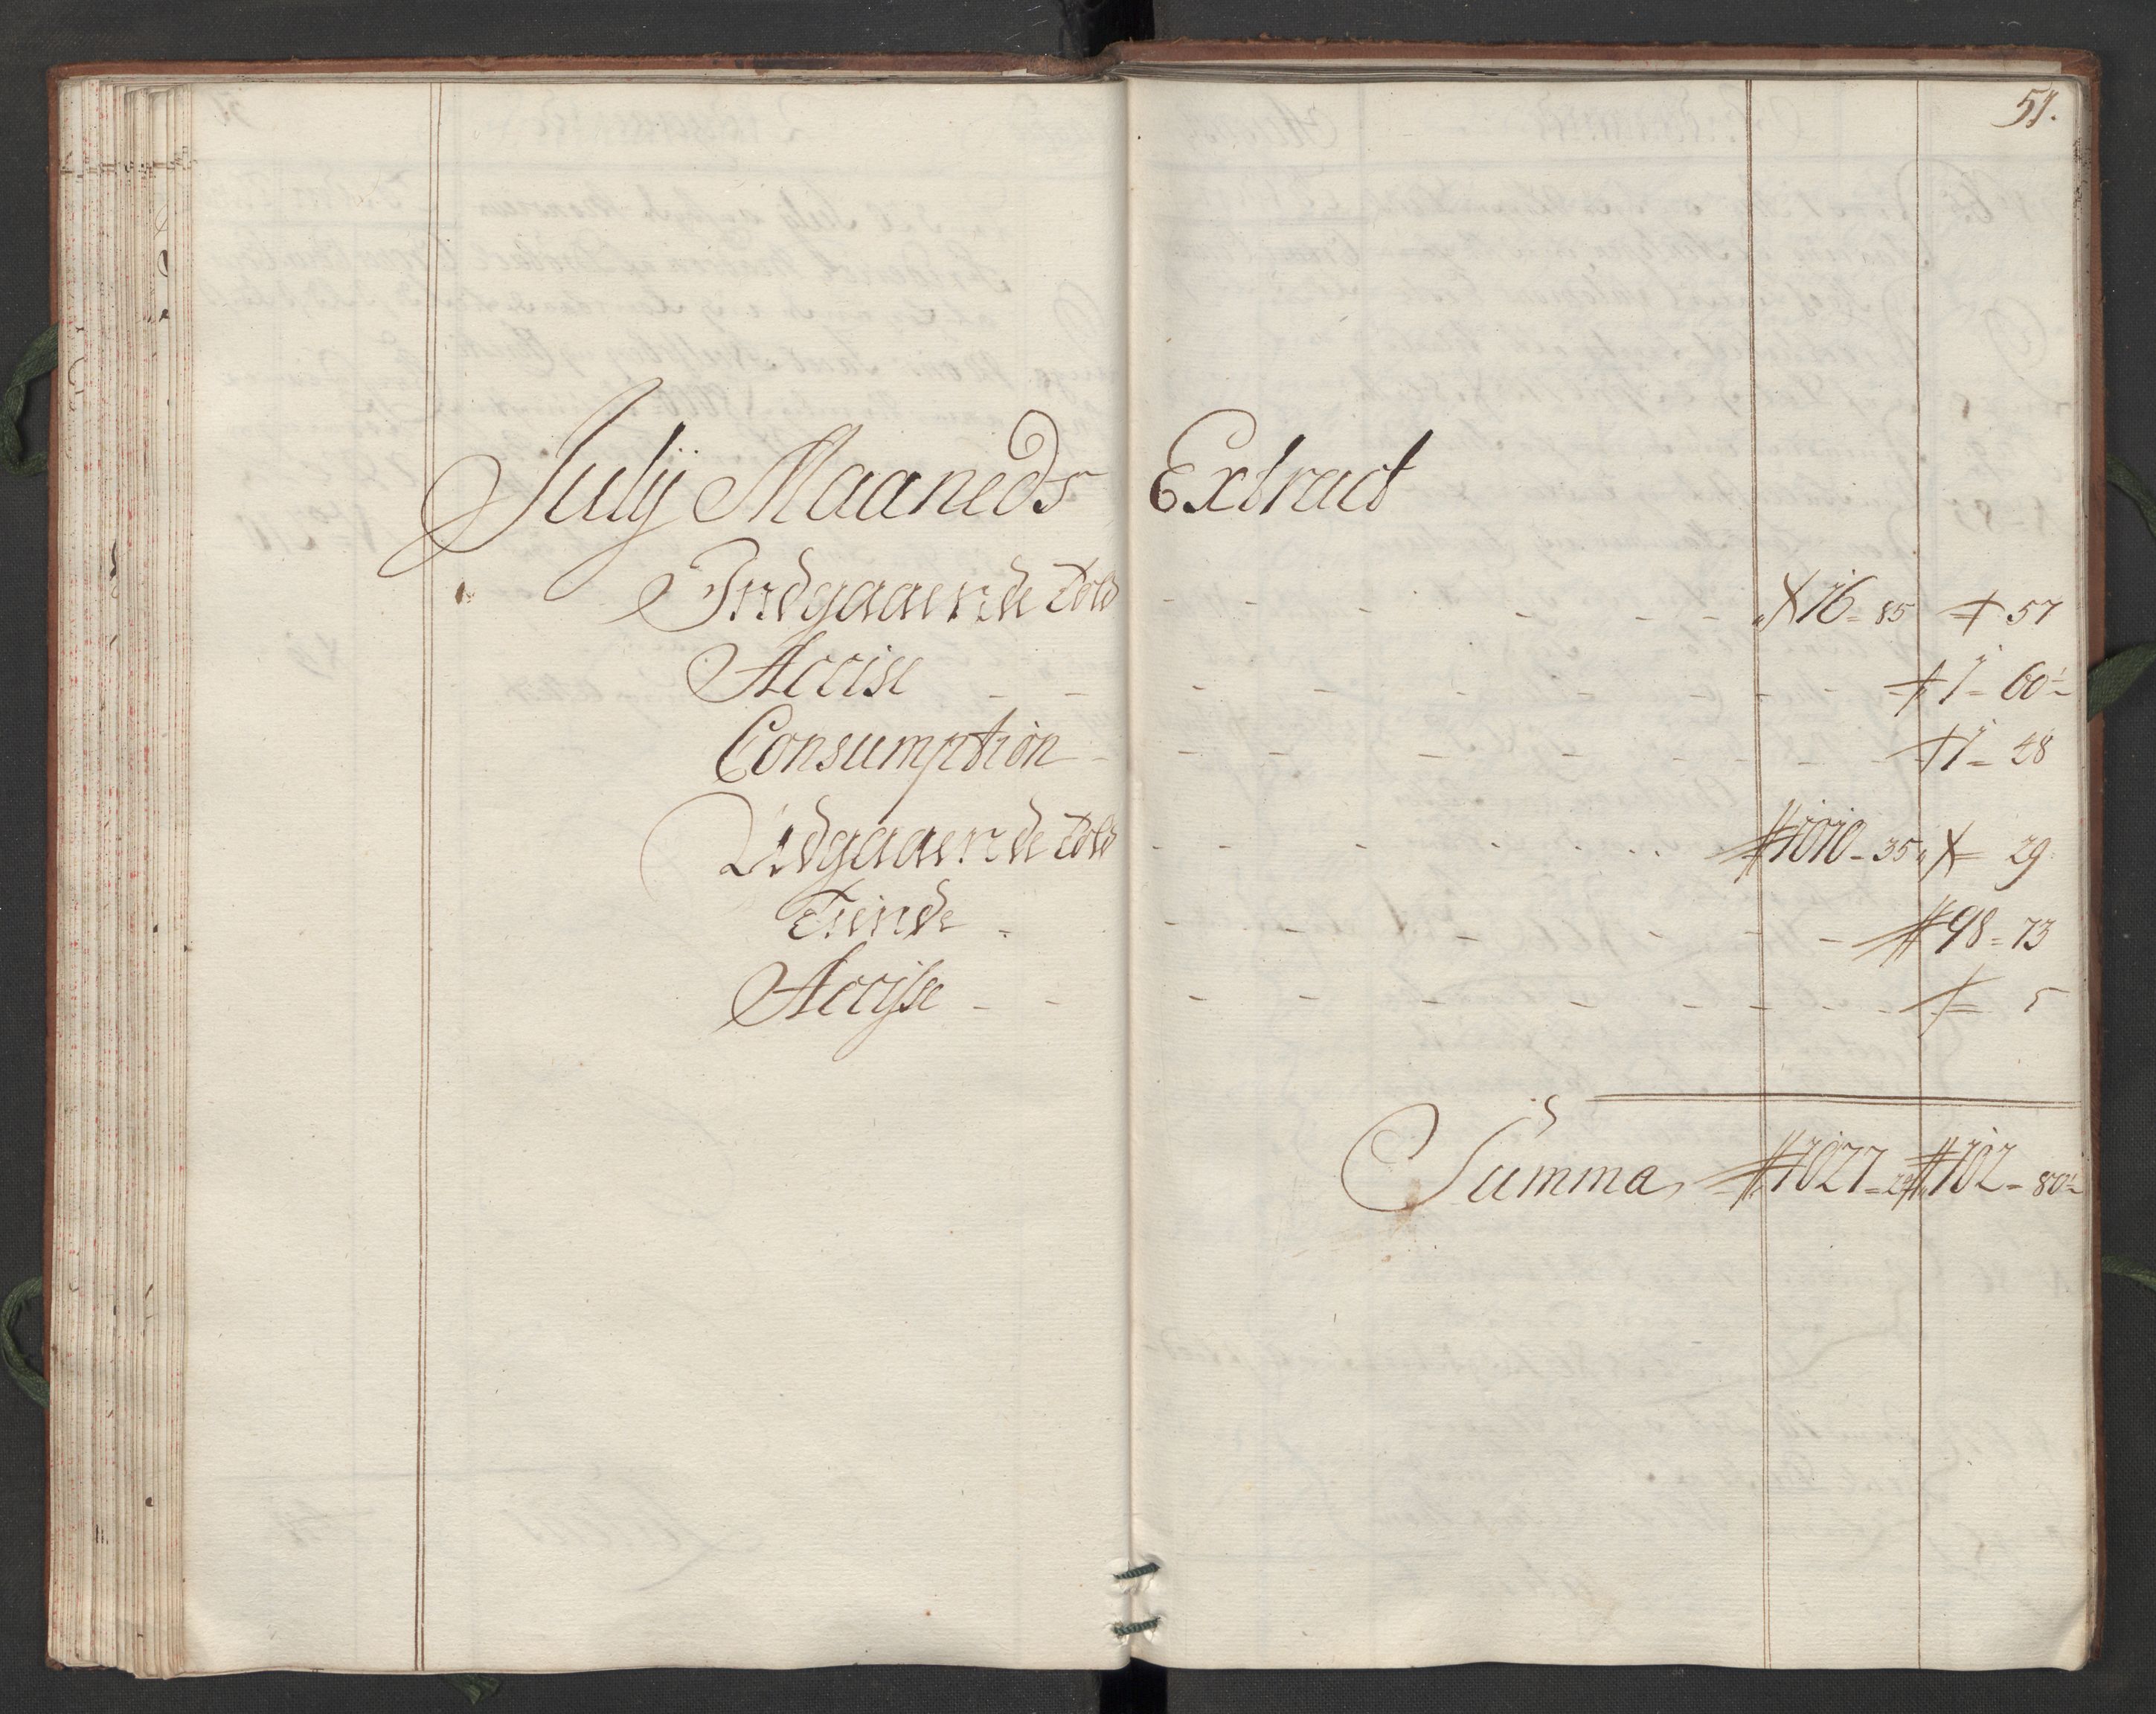 51.
Julij Maaneds Extract
Indgaaende Told - - - - - - 16 = 85 57
Accise - - - - - - - - 1 = 60½
Consumption - - - - - - - 1 = 48
Udgaaende Told - - - - - - 1010 = 35 29
Tiende - - - - - - 98 = 73
Accisse - - - - - - - - 5
Summa 1027 = 24 102 = 80½